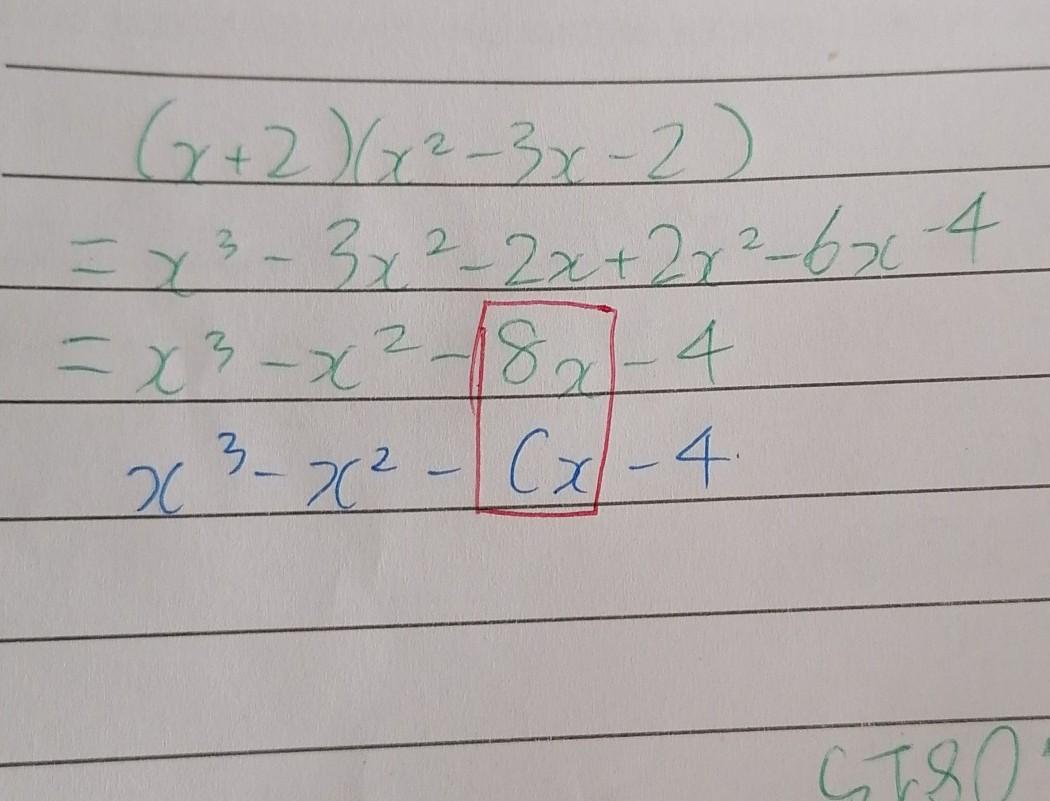 (x+2)(x²-3x-2)
= x³ - 3x² - 2x + 2x² - 6x - 4
= x³ - x² - 8x - 4
x³ - x² - Cx - 4